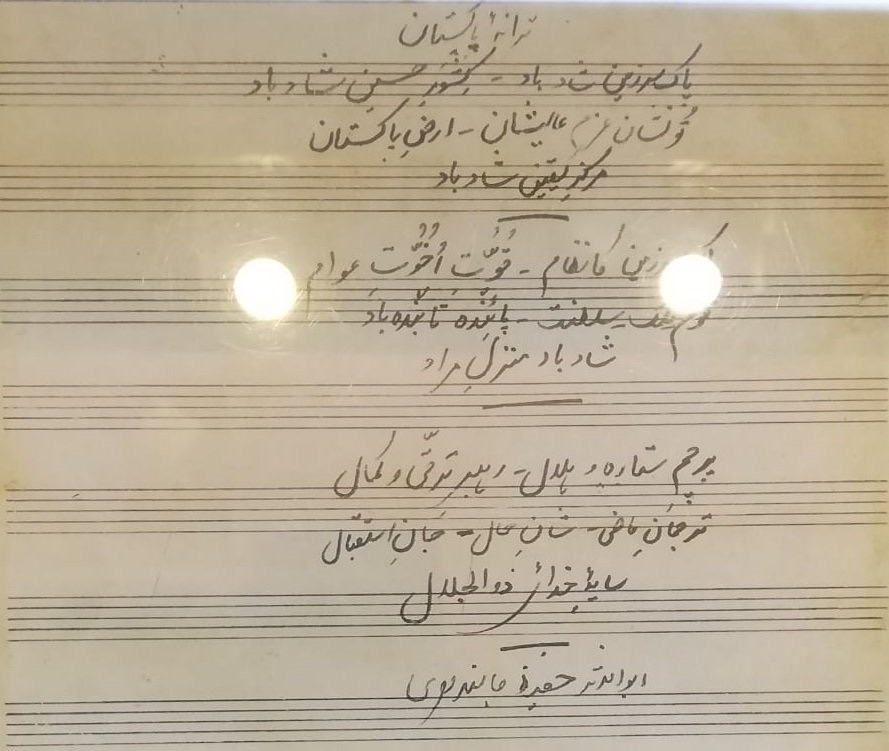 ترانۂ پاکستان
پاک سرزمین شاد باد - کِشوَرِ حسین شاد باد
تُو نشانِ عزمِ عالیشان - ارضِ پاکستان
مرکزِ یقین شاد باد
سرزمین کا نظام - قُوّتِ اُخُوّتِ عوام
سلطنت - پائندہ تابندہ باد
شاد باد منزلِ مراد
پرچمِ ستارہ و ہلال - رہبرِ ترقّی و کمال
ترجمانِ ماضی - شانِ حال - جانِ استقبال
سایۂ خدائے ذوالجلال
ابوالاثر حفیظ جالندھری